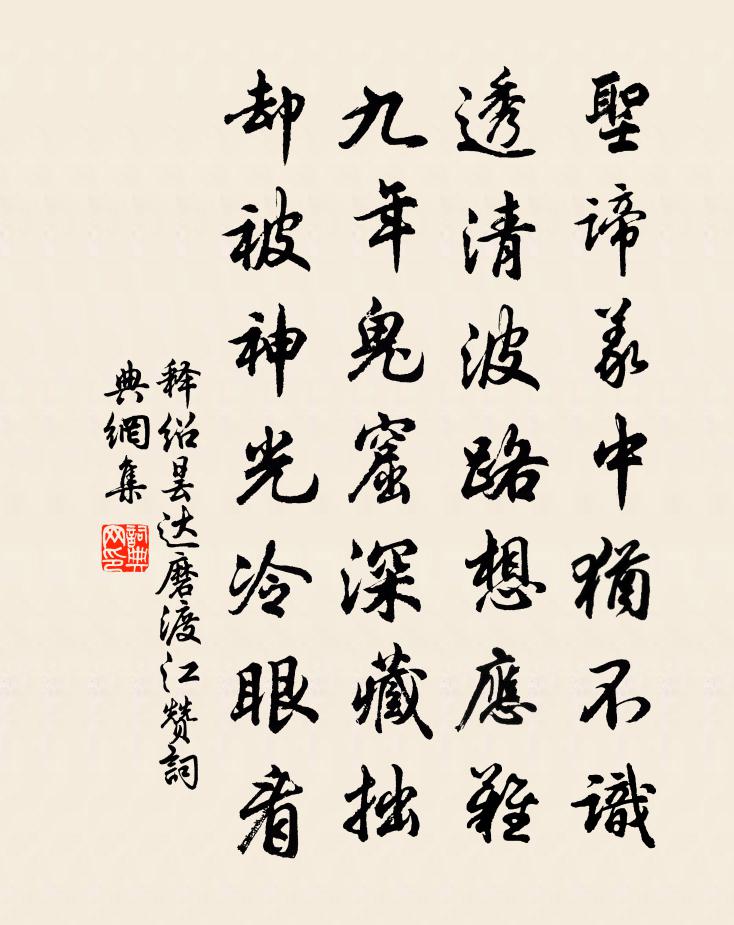 聖諦義中猶不識
透清波路想應難
九年鬼窟深藏拙
却被神光冷眼看
释绍昙达磨渡江赞詞
典網集
詞典
网印